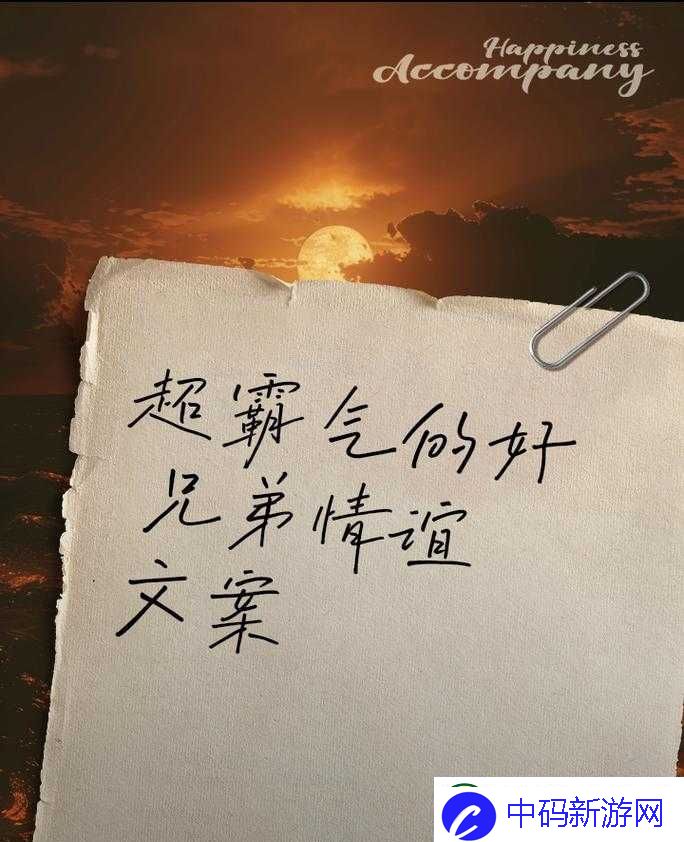 Happiness
Accompany
超霸气的好
兄弟情谊
文案
中码新游网